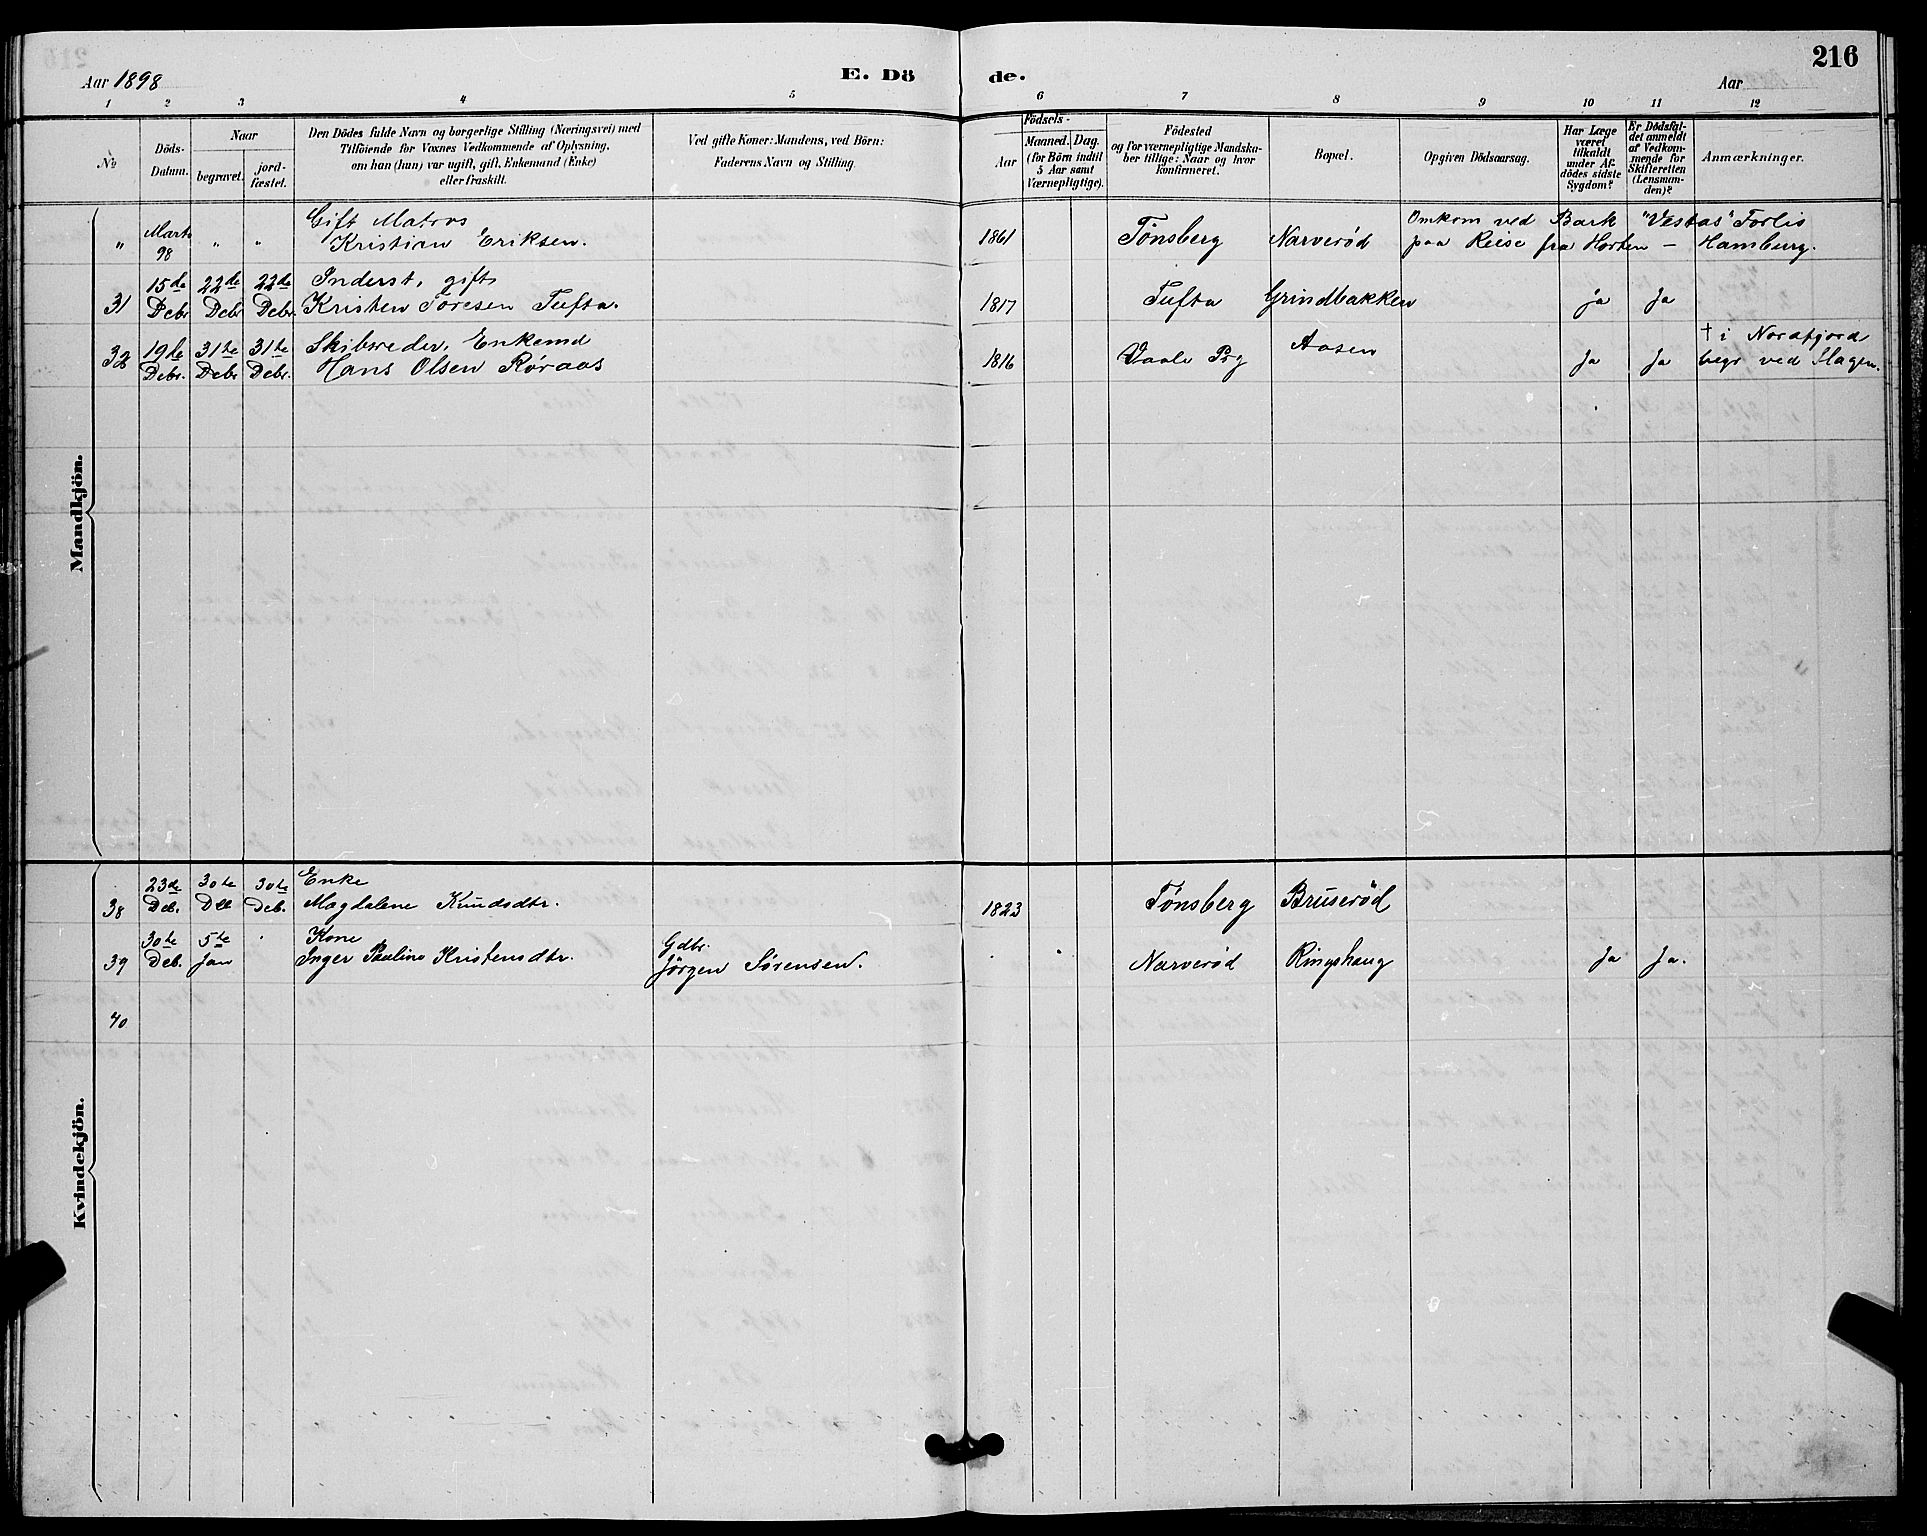 216
Aar 1898
E. Dö
de.
Aar
1 2 3 4 5 6 7 8 9 10 11 12
No
Döds-
Datum.
Naar
begravet.
jord-
fæstet.
Den Dödes fulde Navn og borgerlige Stilling (Næringsvei) med
Tilföiende for Voxnes Vedkommende af Oplysning,
om han (hun) var ugift, gift, Enkemand (Enke)
eller fraskilt.
Ved gifte Koner: Mandens, ved Börn:
Faderens Navn og Stilling.
Födsels-
Aar
Maaned.
Dag.
(for Börn indtil
5 Aar samt
Værnepligtige).
Födested
og for værnepligtige Mandska-
ber tillige: Naar og hvor
konfirmeret.
Bopæl.
Opgiven Dödsaarsag.
Har Læge
været
tilkaldt
under Af-
dödes sidste
Sygdom?
Er Dödsfal-
det anmeldt
af Vedkom-
mende for
Skifteretten
(Lensman-
den)?
Anmærkninger.
Mandkjön.
Gift Matros
" Marts " " Kristian Eriksen. 1861 Tønsberg Narverød Omkom ved Bark "Vestas" Forlis
98 paa Reise fra Horten – Hamburg.
15de 22de 22de Inderst, gift
31 Debr Debr Debr. Kristen Toresen Tufta. 1817 Tufta Grindbakken ja Ja
19de 31te 31te Skibsreder, Enkemd † i Nordfjord
32 Debr. Debr Debr. Hans Olsen Røraas 1816 Vaale Prg Aasen Ja Ja begr ved Slagen.
Kvindekjön.
23de 30te 30te Enke
38 Deb. Deb Deb. Magdalene Knudsdtr. 1823 Tønsberg Bruserød
30te 5te Kone Gdbr.
39 Deb. Jan Inger Pauline Kristensdtr. Jörgen Sørensen. Narverød Ringshaug Ja Ja.
40